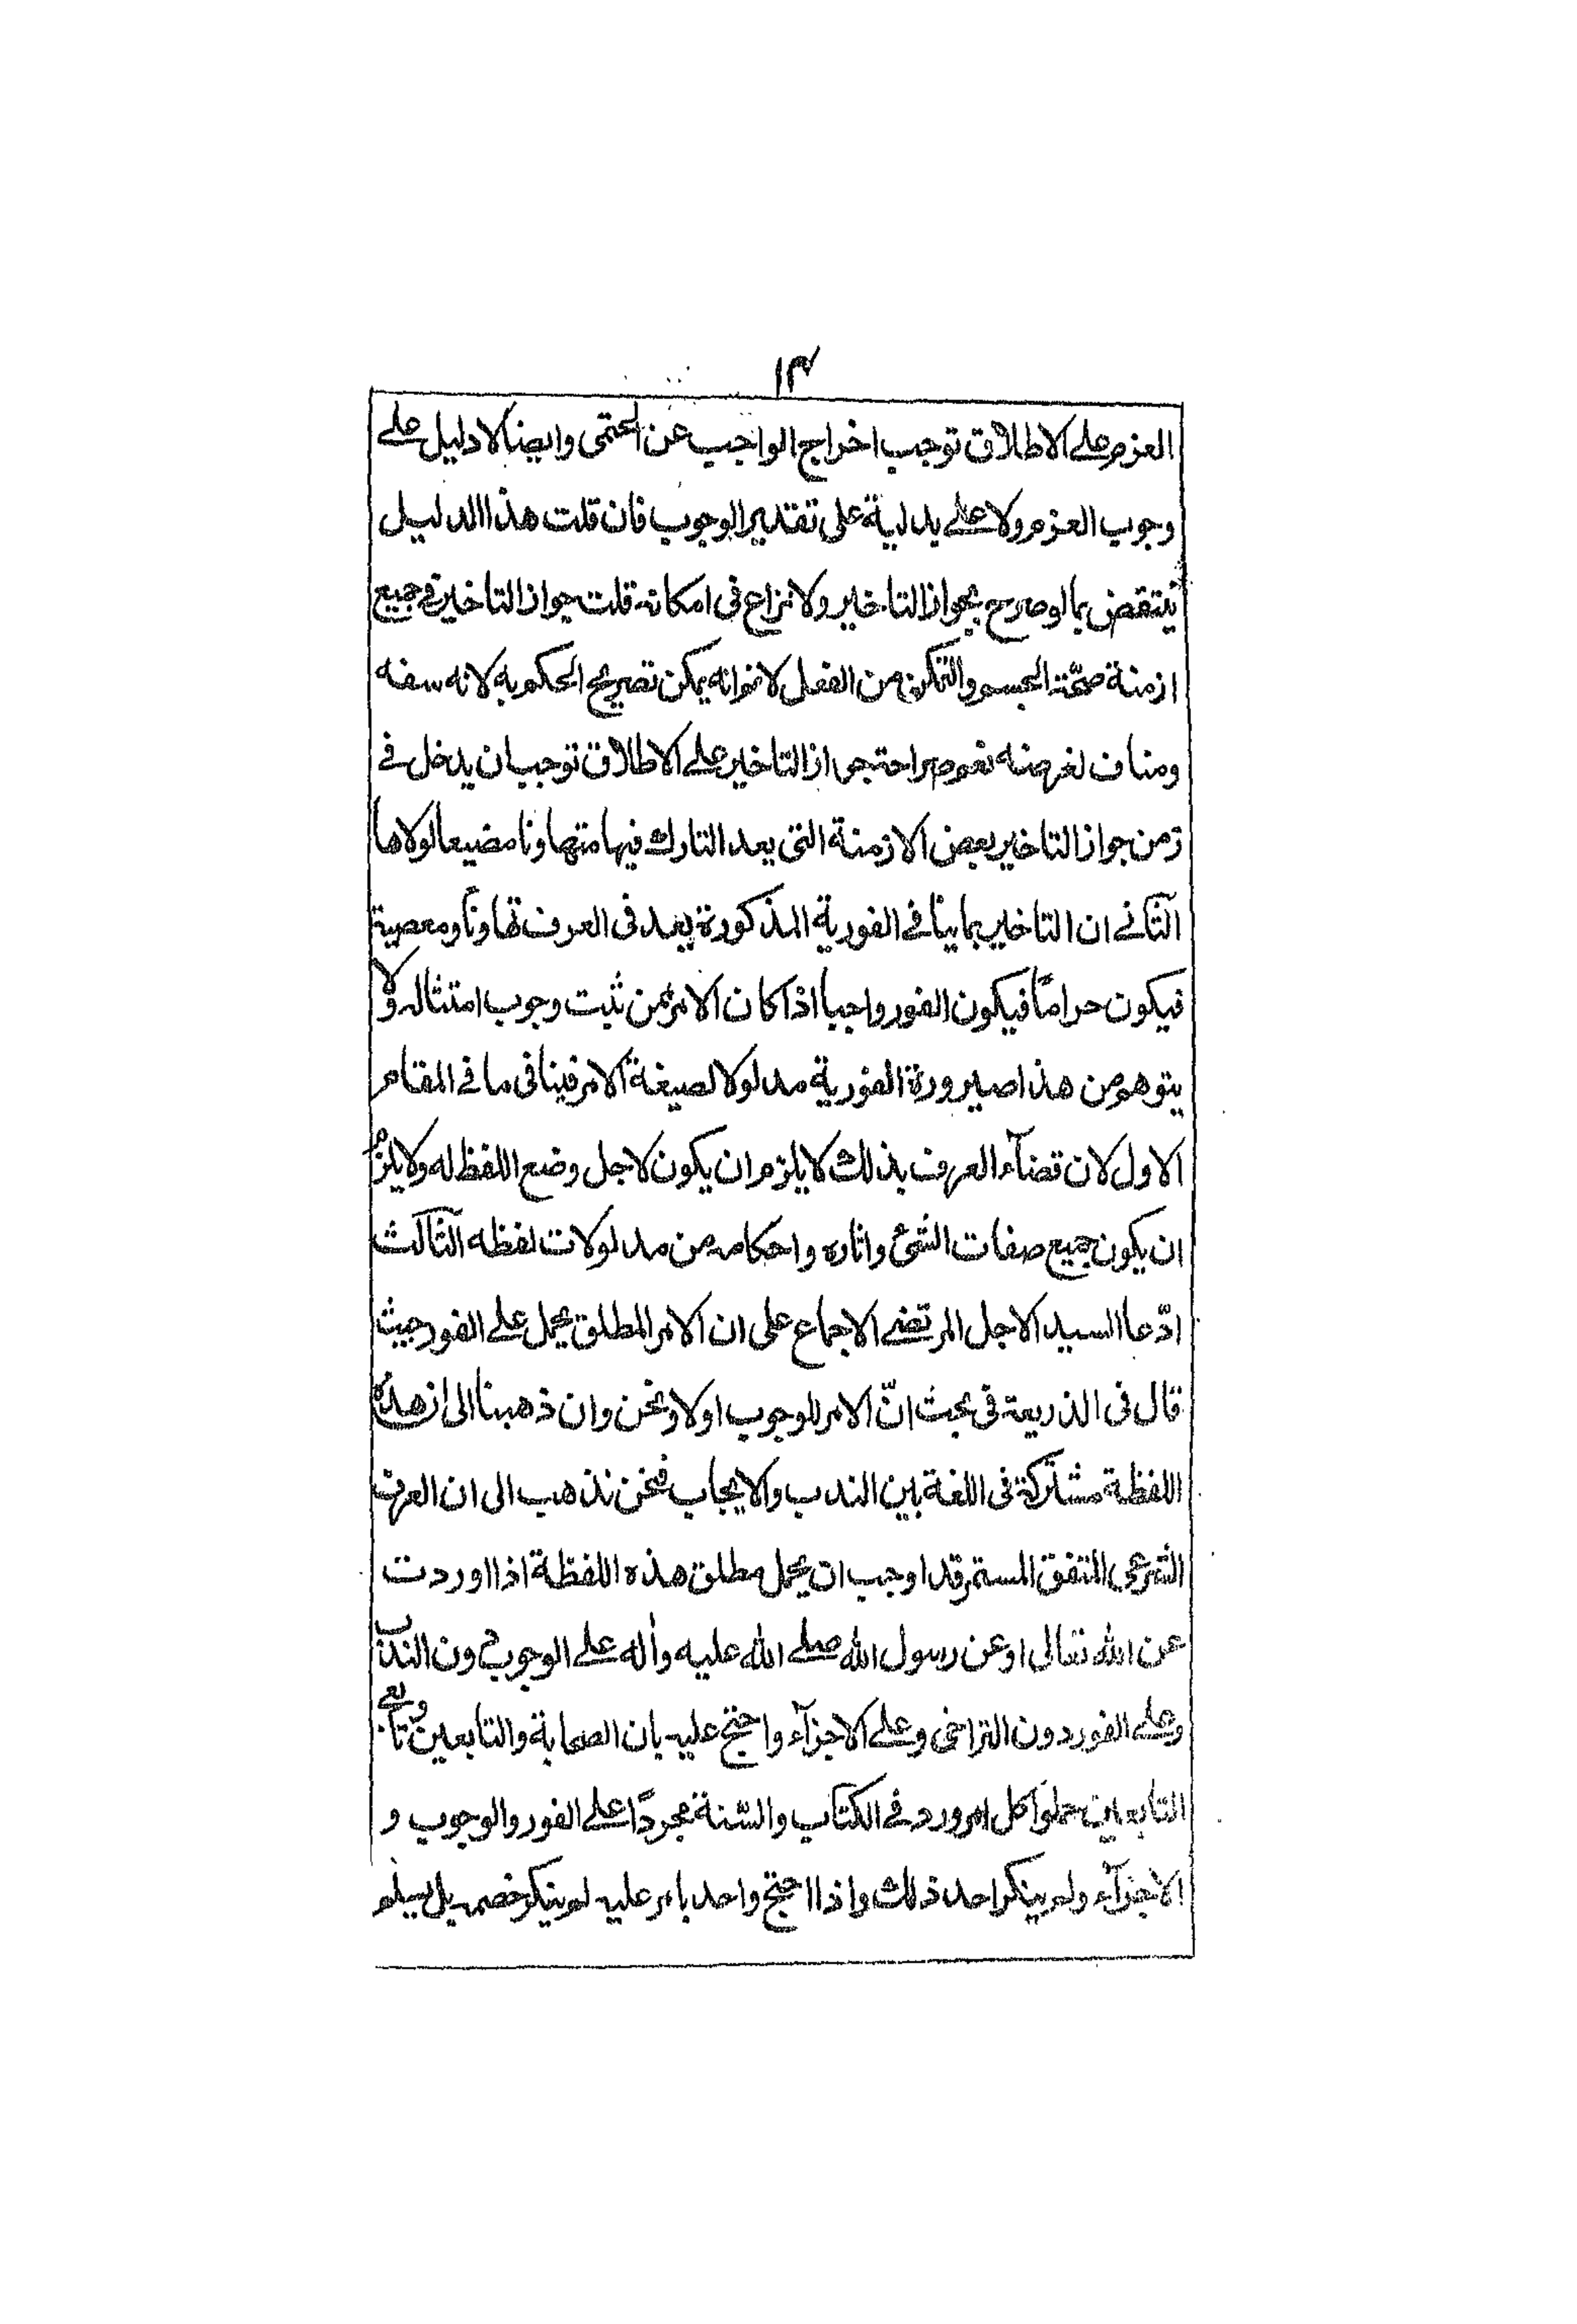 ١٣
العزم علے الاطلاق توجب اخراج الواجب عن الحتمی وايضا لا دليل علے
وجوب العزم ولا علے بدلية على تقدير الوجوب فان قلت هذا الدليل
ينتقض بما لو صرح بجواز التاخير ولا نزاع فی امكانه قلت جواز التاخير فے جميع
ازمنة صحّة الجسم والتمكن من الفعل لا نم انه يمكن تصريح الحكم به لانه سفه
ومناف لغرضه نعم صراحة جواز التاخير علے الاطلاق توجب ان يدخل فے
زمن جواز التاخير بعض الازمنة التی يعد التارك فيها متهاونا مضيعا لولاها
الثّانے ان التاخير بما ينافے الفورية المذكورة يعد فی العرف تهاونًا ومعصية
فيكون حرامًا فيكون الفور واجبا اذا كان الامر ممن ثبت وجوب امتثاله ولا
يتوهم من هذا صيرورة الفورية مدلولا لصيغة الامر فينافی ما فے المقام
الاول لان قضآء العرف بذلك لا يلزم ان يكون لاجل وضع اللفظ له ولا يلزم
ان يكون جميع صفات الشئ واثاره واحكامه من مدلولات لفظه الثّالث
ادّعا السيد الاجل المرتضے الاجماع على ان الامر المطلق يحمل علے الفور حيث
قال فی الذريعة فی بحث انّ الامر للوجوب اولا ونحن وان ذهبنا الى ان هذه
اللفظة مشتركة فی اللغة بين الندب والايجاب فنحن نذهب الى ان العرف
الشرعی المتفق المستمر قد اوجب ان يحمل مطلق هذه اللفظة اذا اوردت
عن الله تعالى او عن رسول الله صلے الله عليه واٰله علے الوجوب دون الندب
وعلے الفور دون التراخی وعلے الاجزآء واحتج عليه بان الصحابة والتابعين وتابعے
التابعين حملوا كل امر ورد فے الكتاب والسّنة مجردًا علے الفور والوجوب و
الاجزآء ولم ينكر احد ذلك واذا احتج واحد بامر عليه لم ينكر خصمه بل يسلم